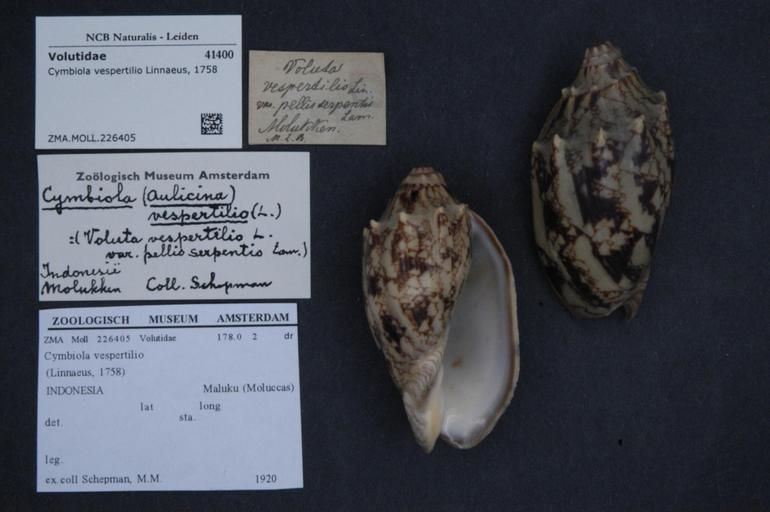 NCB Naturalis - Leiden
Volutidae 41400
Cymbiola vespertilio Linnaeus, 1758
ZMA.MOLL.226405
Voluta
vespertilio Lin.
var. pellis serpentis
Lam.
Molukken.
Zoölogisch Museum Amsterdam
Cymbiola (Aulicina)
vespertilio (L.)
=(Voluta vespertilio L.
var. pellis serpentis Lam.)
Indonesië
Molukken Coll. Schepman
ZOOLOGISCH MUSEUM AMSTERDAM
ZMA Moll 226405 Volutidae 178.0 2 dr
Cymbiola vespertilio
(Linnaeus, 1758)
INDONESIA Maluku (Moluccas)
lat long
det. sta.
leg.
ex.coll Schepman, M.M. 1920